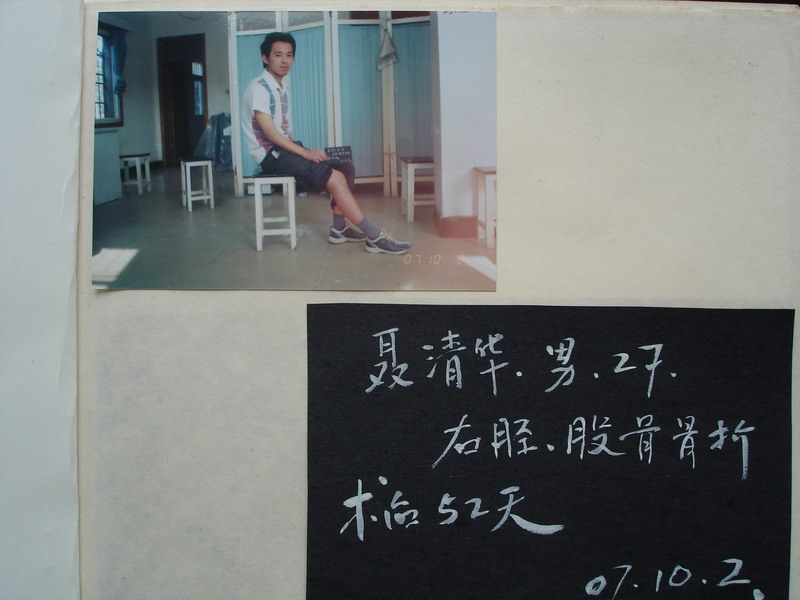 07 10
聂清华.男.27.
右胫、股骨骨折
术后52天
07.10.2.